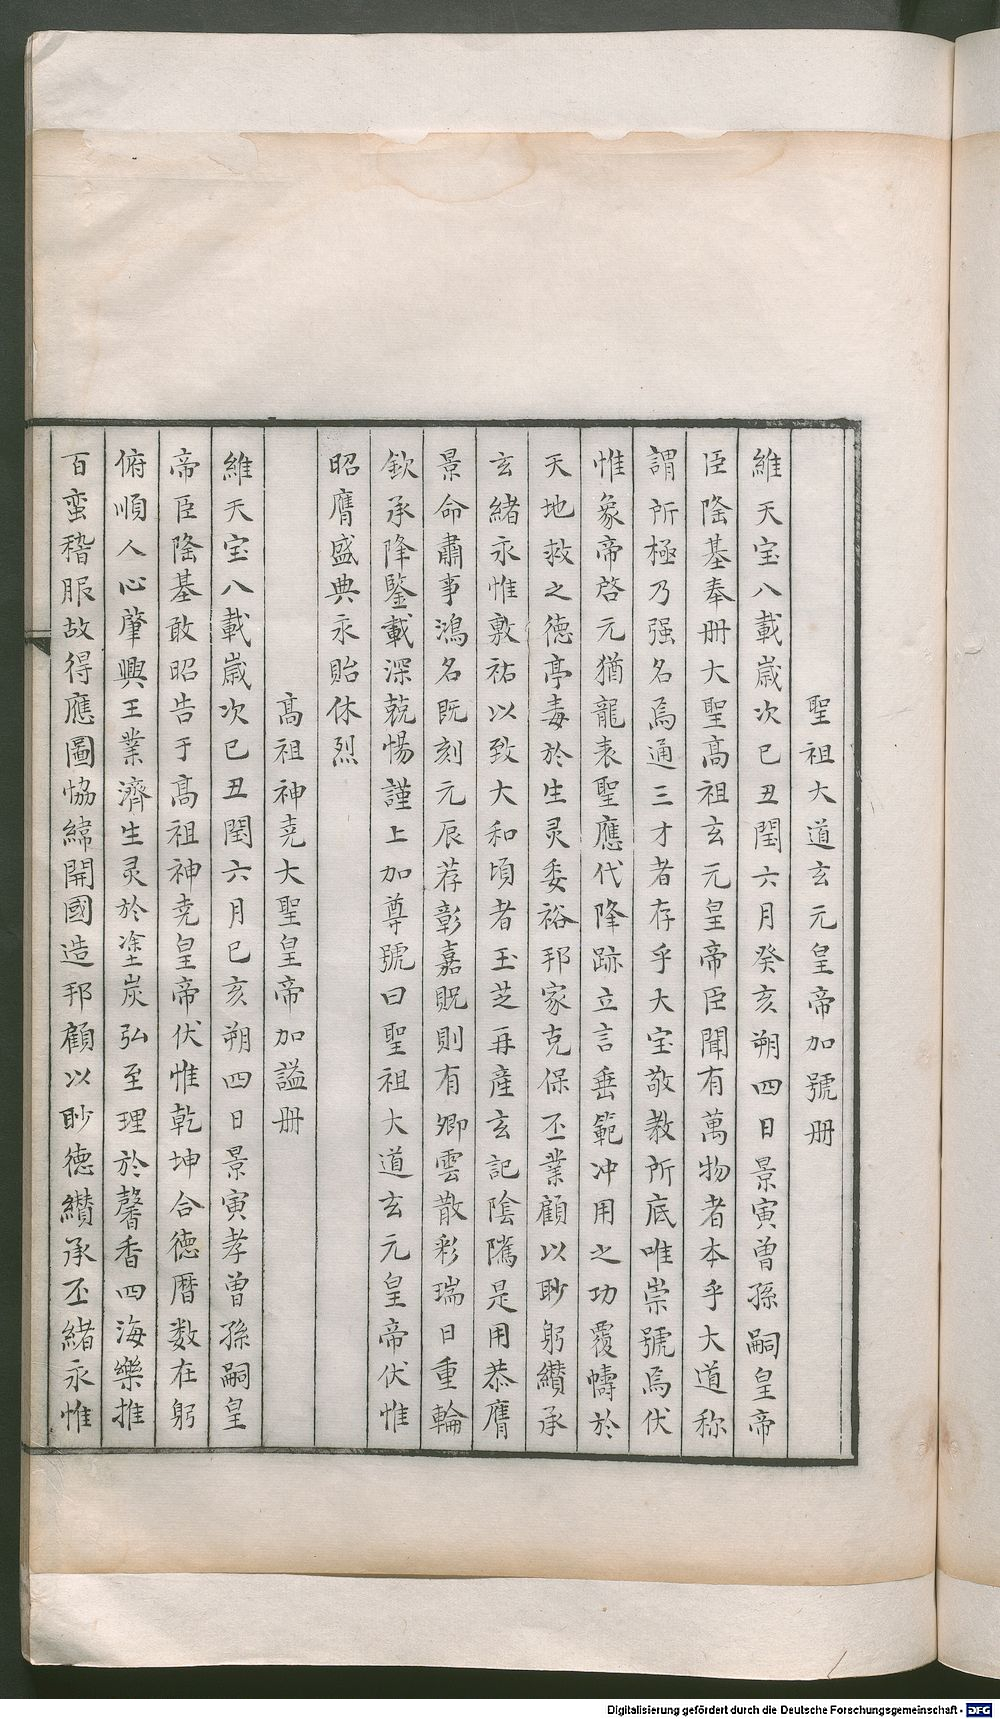 聖祖大道玄元皇帝加號册
維天宝八載歲次己丑閏六月癸亥朔四日景寅曽孫嗣皇帝
臣隆基奉册大聖高祖玄元皇帝臣聞有萬物者本乎大道称
謂所極乃强名焉通三才者存乎大宝敬教所底唯崇號焉伏
惟象帝啓元猶龍表聖應代降跡立言垂範冲用之功覆幬於
天地救之德亭毒於生灵委裕邦家克保丕業顧以眇躬纘承
玄緒永惟敷祐以致大和頃者玉芝再產玄記陰隲是用恭膺
景命肅事鴻名既刻元辰荐彰嘉貺則有卿雲散彩瑞日重輪
欽承降鍳載深兢惕謹上加尊號曰聖祖大道玄元皇帝伏惟
昭膺盛典永貽休烈
高祖神尭大聖皇帝加謚册
維天宝八載歲次己丑閏六月己亥朔四日景寅孝曽孫嗣皇
帝臣隆基敢昭告于高祖神尭皇帝伏惟乾坤合德暦数在躬
俯順人心肇興王業濟生灵於塗炭弘至理於馨香四海樂推
百蛮稽服故得應圖恊緯開國造邦顧以眇德纘承丕緒永惟
Digitalisierung gefördert durch die Deutsche Forschungsgemeinschaft - DFG